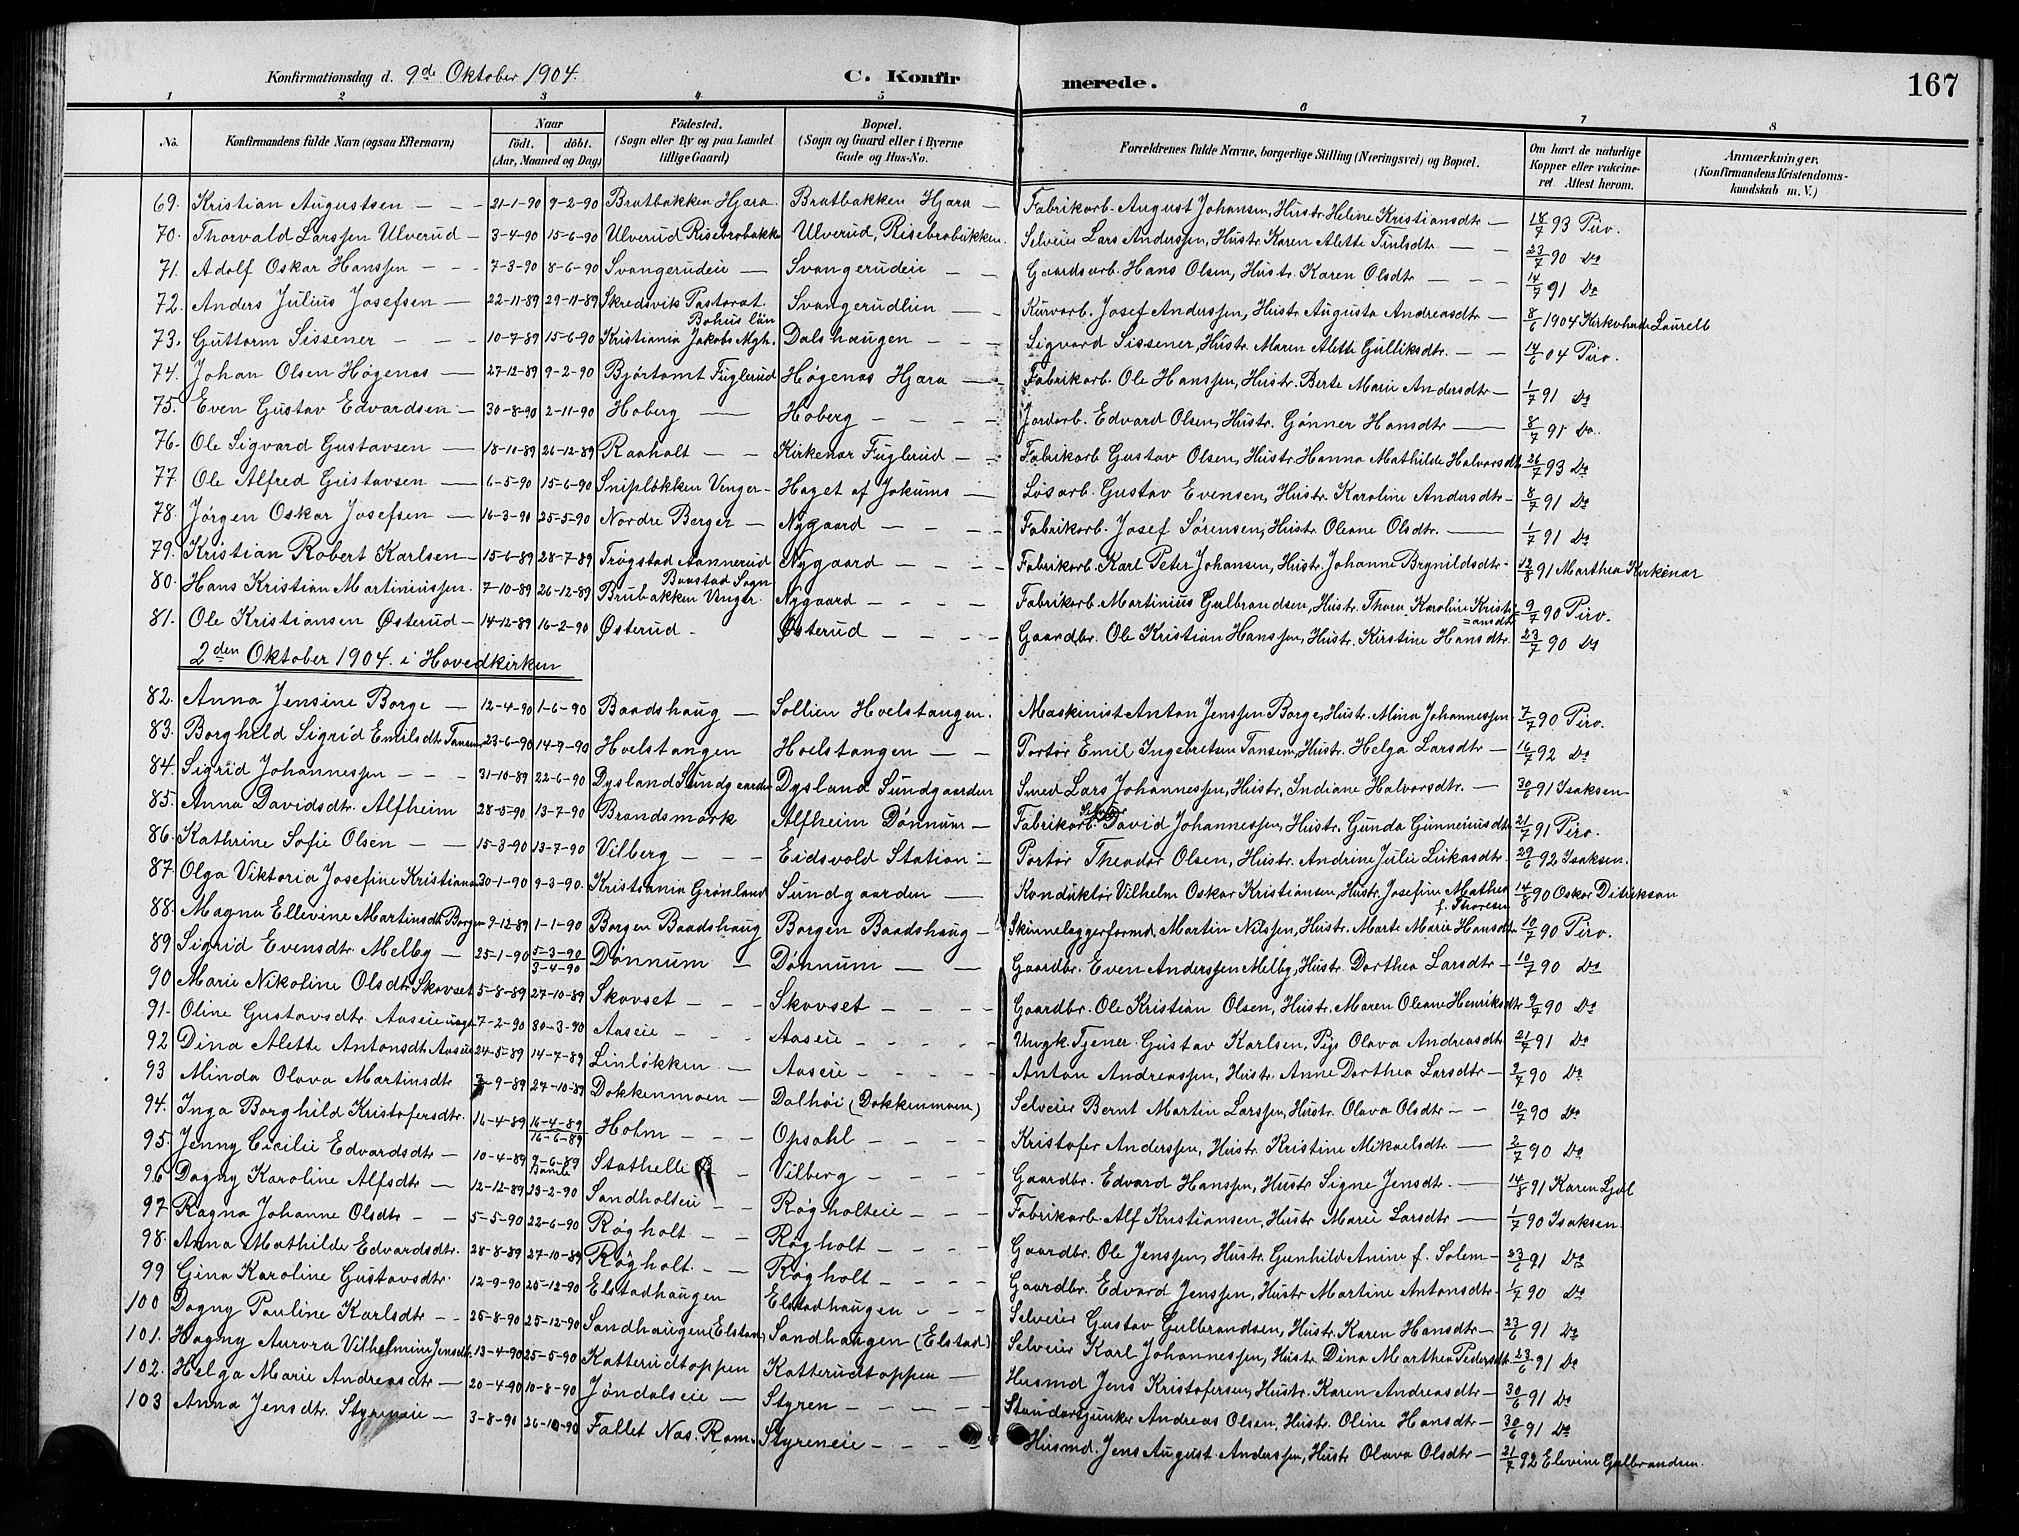 Konfirmationsdag d. 9de Oktober 1904.
C. Konfirmerede.
167
1 2 3 4 5 6 7 8
No.
Konfirmandens fulde Navn (ogsaa Efternavn)
Naar
født. døbt.
(Aar, Maaned og Dag)
Fødested.
(Sogn eller By og paa Landet
tillige Gaard)
Bopæl.
(Sogn og Gaard eller i Byerne
Gade og Hus-No.
Forældrenes fulde Navne, borgerlige Stilling (Næringsvei) og Bopæl.
Om havt de naturlige
Kopper eller vakcine-
ret. Attest herom.
Anmærkninger,
(Konfirmandens Kristendoms-
kundskab m. V.)
69. Kristian Augustsen — 21-1-90 9-2-90 Bratbakken Hjæra. Bratbakken Hjæra — Fabrikarb. August Johansen, Hustr. Helene Kristiansdtr — 18/7 93 Piro.
70. Thorvald Larssen Ulverud — 3-4-90 15-6-90 Ulverud Risebrobakke Ulverud, Risebrobakken. Selveier Lars Anderssen, Hustr. Karen Alette — 23/7 90 Do
71. Adolf Oskar Hanssen — 7-3-90 8-6-90 Svangerudeie — Svangerudeie — Gaardsarb. Hans Olsen, Hustr. Karen Olsdtr — 14/7 91 Do
72. Anders Julius Josefsen — 22-11-89 29-11-89 Skredsvik Pastorat. Bohus län Svangerudlien — Kurvarb. Josef Anderssen, Hustr Augusta Andreasdtr — 8/6 1904 Kirkvhade Laurell
73. Guttorm Sissener — 10-7-89 15-6-90 Kristiania Jakobs Mgh. Dalshaugen — Sigvard Sissener, Hustr. Maren Alette Gulliksdtr. — 14/6 04 Piro.
74. Johan Olsen Høgenas — 27-12-89 9-2-90 Bjøntomt Fuglerud Høgenas Hjæra — Fabrikarb. Ole Hanssen, Hustr. Berte Marie Andersdtr — 1/7 91 Do
75. Even Gustav Edvardsen — 30-8-90 2-11-90 Hoberg — Hoberg — Jordarb. Edvard Olsen, Hustr. Gønner Hansdtr — 8/7 91 Do.
76. Ole Sigvard Gustavsen — 18-10-89 26-12-89 Raaholt — Kirkenær Fuglerud — Fabrikarb Gustav Olsen, Hustr. Hanna Mathilde Halvorsdtr 26/7 93 Do
77. Ole Alfred Gustavsen — 6-5-90 15-6-90 Snipløkken Venger — Haget af Jokums — Løsarb. Gustav Evensen, Hustr. Karoline Andersdtr — 8/7 91 Do
78. Jørgen Oskar Josefsen — 16-3-90 25-5-90 Nordre Berger — Nygaard — Fabrikarb. Josef Sørensen, Hustr Oleane Olsdtr. — 1/7 91 Do
79. Kristian Robert Karlsen — 15-6-89 28-7-89 Trøgstad Aannerud Baastad Sogn Nygaard — Fabrikarb. Karl Peter Johansen, Hustr. Johanne Brynildsdtr — 12/8 91 Marthea Kirkenær
80. Hans Kristian Martiniussen. 7-10-89 26-12-89 Brubakken Venger. Nygaard — Fabrikarb. Martinius Gulbrandsen, Hustr. Thora Karoline Kristi=ansdtr 9/7 90 Piro.
81. Ole Kristiansen Østerud — 14-12-89 16-2-90 Østerud — Østerud — Gaardbr. Ole Kristian Hanssen, Hustr. Kirstine Hansdtr. 23/7 90 Do
2den Oktober 1904. i Hovedkirken
82. Anna Jensine Borge — 12-4-90 1-6-90 Baadshaug — Sollien Hoelstangen. Maskinist Anton Jenssen Borge, Hustr. Mina Johannessen 7/7 90 Piro.
83. Borghild Sigrid Emilsdtr. Tansem 23-6-90 14-9-90 Hoelstangen Hoelstangen — Portør Emil Ingebretsen Tansem, Hustr. Helga Larsdtr — 16/7 92 Do
84. Sigrid Johannessen — 31-10-89 22-6-90 Dysland Sundgaarden Dysland Sundgaarden Smed Lars Johannessen, Hustr, Indiane Halvorsdtr. — 30/6 91 Isaksen
85. Anna Davidsdtr. Alfheim 28-5-90 13-7-90 Brandsmørk Alfheim Dønnum — Fabrikarb. David Johannessen, Hustr. Gunda Gunneriusdtr 21/7 91 Piro.
86. Kathrine Sofie Olsen — 15-3-90 13-7-90 Vilberg — Eidsvold Station — Portør Theodor Olsen, Hustr. Andrine Julie Lukasdtr. 29/6 92 Isaksen.
87. Olga Viktoria Josefine Kristiansen 30-1-90 9-3-90. Kristiania Grønland Sundgaarden — Konduktør Vilhelm Oskar Kristiansen, Hustr. Josefine Mathea f. Thoresen 14/8 90 Oskar Ditrikson
88. Magna Ellevine Martinsdtr. Borgen 9-12-89 1-1-90 Borgen Baadshaug Borgen Baadshaug — Skinnelæggerformd. Martin Nilssen, Hustr. Marte Marie Hansdtr 10/7 90 Piro.
89. Sigrid Evensdtr. Melby — 25-1-90 5-3-90 3-4-90 Dønnum — Dønnum — Gaardbr. Even Anderssen Melby, Hustr. Dorthea Larsdtr — 10/7 90 Do
90 Marie Nikoline Olsdtr. Skovset 5-8-89 27-10-89 Skovset — Skovset — Gaardbr. Ole Kristian Olsen, Hustr. Maren Oleane Henriksdtr 9/7 90 Do
91. Oline Gustavsdtr. Aaseie uægt 7-2-90 30-3-90 Aaseie — Aaseie — Ungk. Tjener Gustav Karlsen, Pige Olava Andreasdtr 21/7 91 Do
92 Dina Alette Antonsdtr Aaseie 24-5-89 14-7-89 Linløkken — Aaseie — Anton Andreassen, Hustr. Anne Dorthea Larsdtr — 2/7 90 Do
93 Minda Olava Martinsdtr -9-89 27-10-89 Dokkenmoen — Dalhøi (Dokkenmoen) Selveier Bernt Martin Larssen, Hustr. Olava Olsdtr — 10/7 90 Do
94. Inga Borghild Kristofersdtr. 16-4-89 16-4-89 16-6-89 Holm — Opsahl — Kristofer Anderssen, Hustr. Kristine Mikaelsdtr. — 2/7 90 Do
95. Jenny Cicilie Edvardsdtr — 10-4-89 9-6-89 Bamle Stathelle — Vilberg — Gaardbr. Edvard Hanssen, Hustr Signe Jensdtr. — 14/8 91 Karen
96 Dagny Karoline Alfsdtr — 12-12-89 23-2-90 Sandholteie — Røgholteie — Fabrikarb. Alf Kristiansen, Hustr Marie Larsdtr — 1/7 90 Isaksen.
97. Ragna Johanne Olsdtr — 5-5-90 22-6-90 Røgholt — Røgholt — Gaardbr. Ole Jenssen, Hustr. Gunhild Anine f. Solem — 23/6 91 Do
98. Anna Mathilde Edvardsdtr. 28-8-89 27-10-89 Røgholt. — Røgholt — Gaardbr. Edvard Jenssen, Hustr Martine Antonsdtr — 1/7 90 Do
99 Gina Karoline Gustavsdtr. 12-9-90 25-12-90 Elstadhaugen Elstadhaugen — Selveier Gustav Gulbrandsen, Hustr. Karen Hansdtr — 23/6 91 Do
100 Dagny Pauline Karlsdtr — 26-8-90 25-12-90 Sandhaugen (Elstad) Sandhaugen (Elstad) Selveier Karl Johannessen, Hustr. Dina Marthea Pedersdtr. 23/6 91 Do
101. Hagny Aurora Vilhelmine Jensdtr. 13-4-90 25-5-90 Katterudtoppen Katterudtoppen — Husmd Jens Kristofersen, Hustr. Karen Andreasdtr — 30/6 91 Do
102. Helga Marie Andreasdtr — 20-4-90 10-8-90 Jøndalseie — Styren — Andreas Olsen, Hustr. Oline Hansdtr — 30/6 91 Do
103 Anna Jensdtr. Styreneie — 3-8-90 26-10-90 Fallet Nas. Rom. Styreneie — Husmd. Jens August Anderssen, Hustr Olava Olsdtr — 21/7 92 Elevine Gulbrandsen.